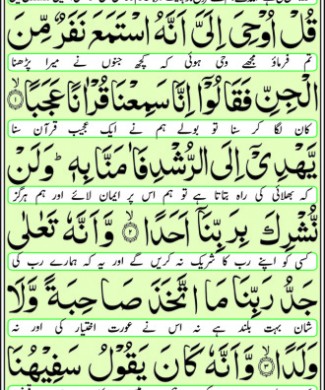 قُلْ اُوْحِیَ اِلَیَّ اَنَّهُ اسْتَمَعَ نَفَرٌ مِّنَ
تم فرماؤ مجھے وحی ہوئی کہ کچھ جنوں نے میرا پڑھنا
الْجِنِّ فَقَالُوْۤا اِنَّا سَمِعْنَا قُرْاٰنًا عَجَبًا ۙ﴿۱﴾
کان لگا کر سنا تو بولے ہم نے ایک عجیب قرآن سنا
یَّهْدِیْۤ اِلَی الرُّشْدِ فَاٰمَنَّا بِهٖ ؕ وَلَنْ
کہ بھلائی کی راہ بتاتا ہے تو ہم اس پر ایمان لائے اور ہم ہرگز
نُّشْرِكَ بِرَبِّنَاۤ اَحَدًا ۙ﴿۲﴾ وَّاَنَّهٗ تَعٰلٰی
کسی کو اپنے رب کا شریک نہ کریں گے اور یہ کہ ہمارے رب کی
جَدُّ رَبِّنَا مَا اتَّخَذَ صَاحِبَةً وَّلَا
شان بہت بلند ہے نہ اس نے عورت اختیار کی اور نہ
وَلَدًا ۙ﴿۳﴾ وَّاَنَّهٗ كَانَ یَقُوْلُ سَفِیْهُنَا